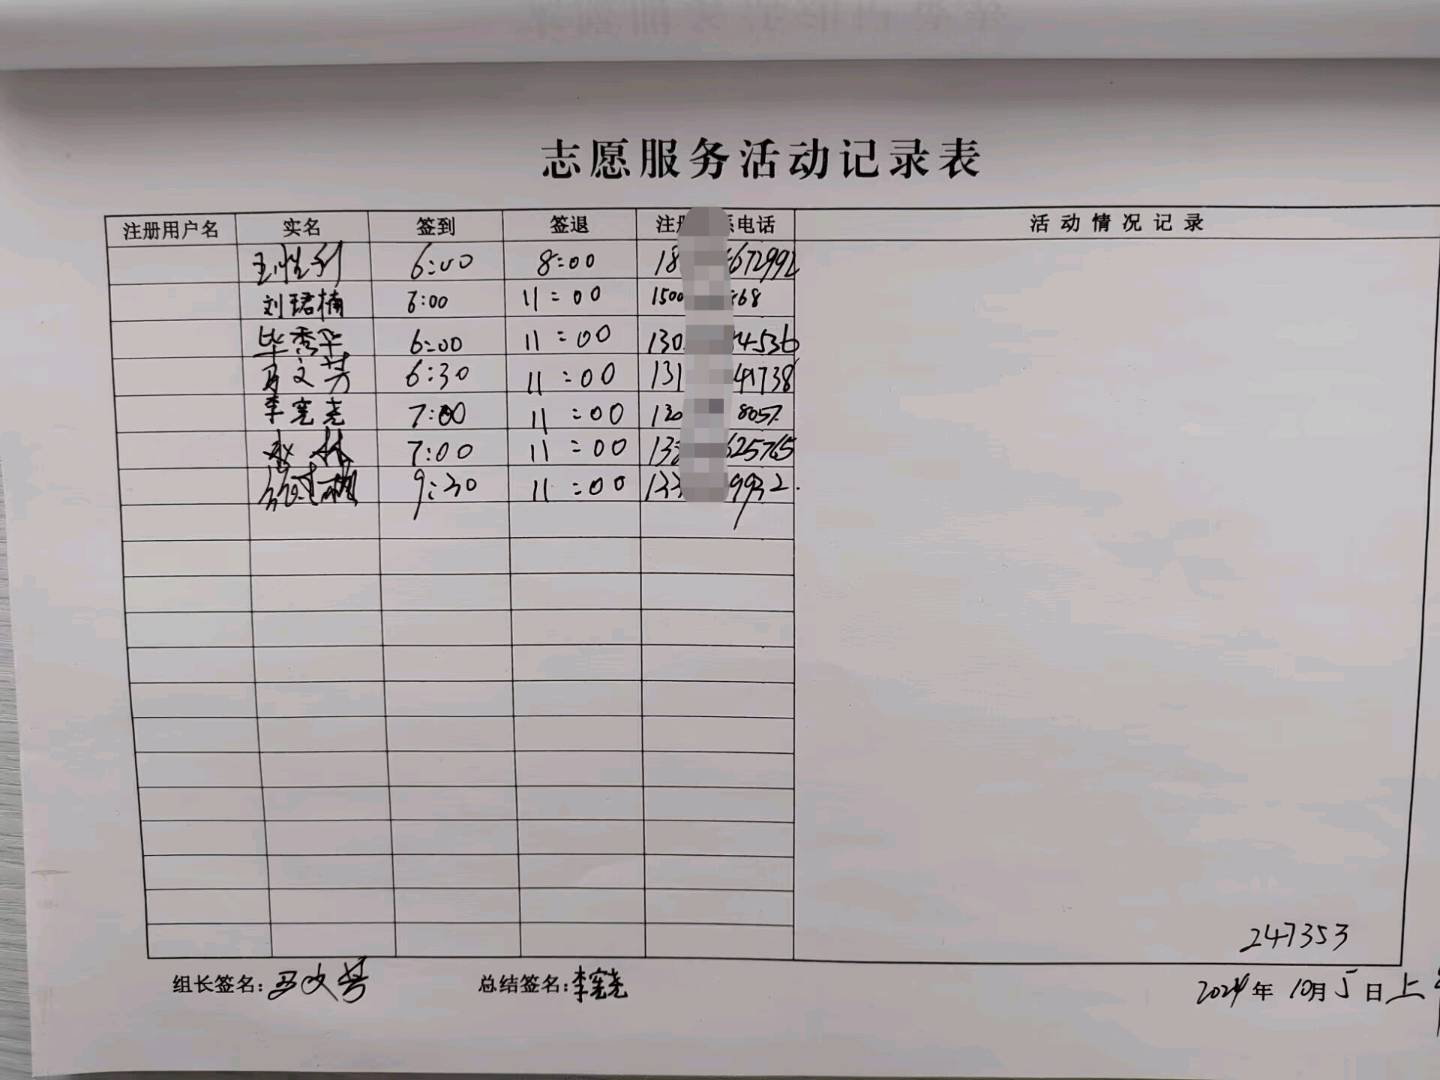 志愿服务活动记录表
注册用户名 实名 签到 签退 注册 系电话 活动情况记录
6:00 8:00 18 672992
刘珺楠 6:00 11:00 1500 68
毕秀华 6:00 11:00 130 4536
马文芳 6:30 11:00 131 41738
李宪尧 7:00 11:00 130 8057
林 7:00 11:00 133 625765
9:30 11:00 133 9932.
247353
组长签名: 马文芳 总结签名: 李宪尧 2024年10月5日上午